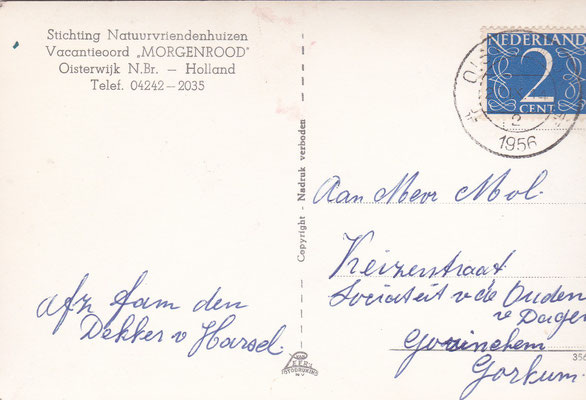 Stichting Natuurvriendenhuizen
Vacantieoord „MORGENROOD"
Oisterwijk N.Br. — Holland
Telef. 04242—2035
NEDERLAND
2
CENT
2
1956
Copyright - Nadruk verboden
Aan Mevr Mol.
Keizerstraat
Sociëteit v de Ouden
v Dagen
Gorinchem
Gorkum.
afz fam den
Dekker v Harsel.
VAN
LEER'S
FOTODRUKIND
N.V.
356